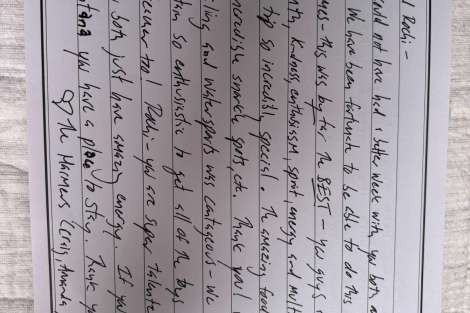 d Rochi -
could not have had a better week with you both a
We have been fortunate to be able to do this
- this was by far the BEST - you guys
kindness, enthusiasm, spirit, energy and mult
trip so incredibly special. The amazing food
snorkle spots, etc. Thank you!
ling and watersports was contagious - we
so enthusiastic to get all of the toys
too! Rochi - you are super talente
both just have amazing energy. If you
tana you have a place to stay. Thank yo
The Harmons (Craig, Amanda